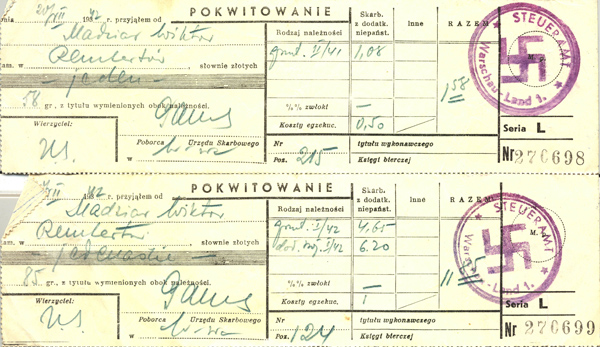 POKWITOWANIE
20/XII 1942 r. przyjąłem od
Madziar Wiktor
Rembertów
zam. w słownie złotych
— jeden —
58 gr., z tytułu wymienionych obok należności.
Wierzyciel:
Poborca Urzędu Skarbowego
Rodzaj należności
Skarb. z dodatk. niepańst.
Inne
RAZEM
grunt. I/41 1,08
%% zwłoki —
Koszty egzekuc. 0,50
1 58
Nr tytułu wykonawczego
Poz. 215 Księgi bierczej
STEUERAMT
Warschau-Land 1.
M. p.
Seria L
Nr 276698
POKWITOWANIE
XII 1942 r. przyjąłem od
Madziar Wiktor
Rembertów
zam. w słownie złotych
— jedenaście —
85 gr., z tytułu wymienionych obok należności.
Wierzyciel:
Poborca Urzędu Skarbowego
Rodzaj należności
Skarb. z dodatk. niepańst.
Inne
RAZEM
grunt. I/42 4.65
I/42 6.20
%% zwłoki —
Koszty egzekuc. 1
11 85
Nr tytułu wykonawczego
Poz. 124 Księgi bierczej
STEUERAMT
Warschau-Land 1.
Seria L
Nr 276699